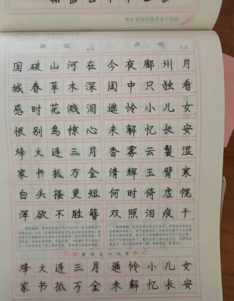 春望 月夜
国破山河在 今夜鄜州月
城春草木深 闺中只独看
感时花溅泪 遥怜小儿女
恨别鸟惊心 未解忆长安
烽火连三月 香雾云鬟湿
家书抵万金 清辉玉臂寒
白头搔更短 何时倚虚幌
浑欲不胜簪 双照泪痕干
烽火连三月 遥怜小儿女
家书抵万金 未解忆长安